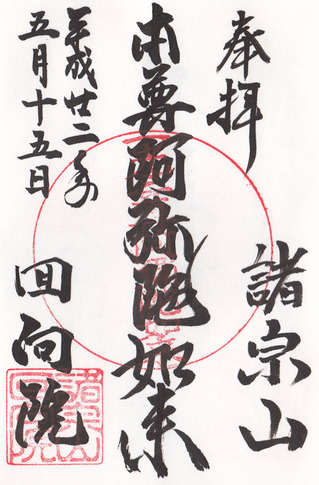 奉拝
諸宗山
本尊阿弥陀如来
平成廿二年
五月十五日
回向院